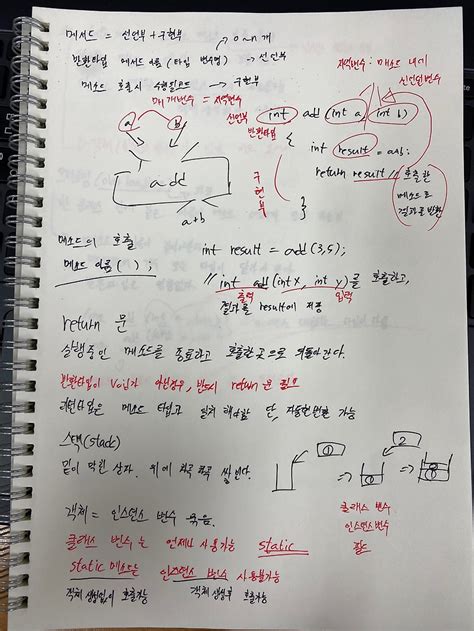 메서드 = 선언부 + 구현부
0~n개
반환타입 메서드 이름 (타입 변수명) → 선언부
메소드 호출시 수행될코드 → 구현부
지역변수 : 메소드 내에
선언된변수
매개변수 = 지역변수
선언부
반환타입
int add (int a, int b)
{
int result = a+b;
return result // 호출한
메소드로
결과를 반환
}
구현부
a
b
add
a+b
메소드의 호출
메소드 이름( );
int result = add(3,5);
// int add(int x, int y)를 호출하고,
출력
입력
결과를 result에 저장
return 문
실행중인 메소드를 종료하고 호출한곳으로 되돌아간다.
반환타입이 void가 아닌경우, 반드시 return 문 필요
리턴타입은 메소드 타입과 일치 해야함 단, 자동형변환 가능
스택(stack)
밑이 막힌 상자. 위에 차곡 차곡 쌓인다.
①
2
①
②
①
객체 = 인스턴스 변수 묶음.
클래스 변수
인스턴스변수
클래스 변수는 언제나 사용가능 static
static 메소드는 인스턴스 변수 사용불가능
객체 생성없이 호출가능 객체 생성후 호출가능